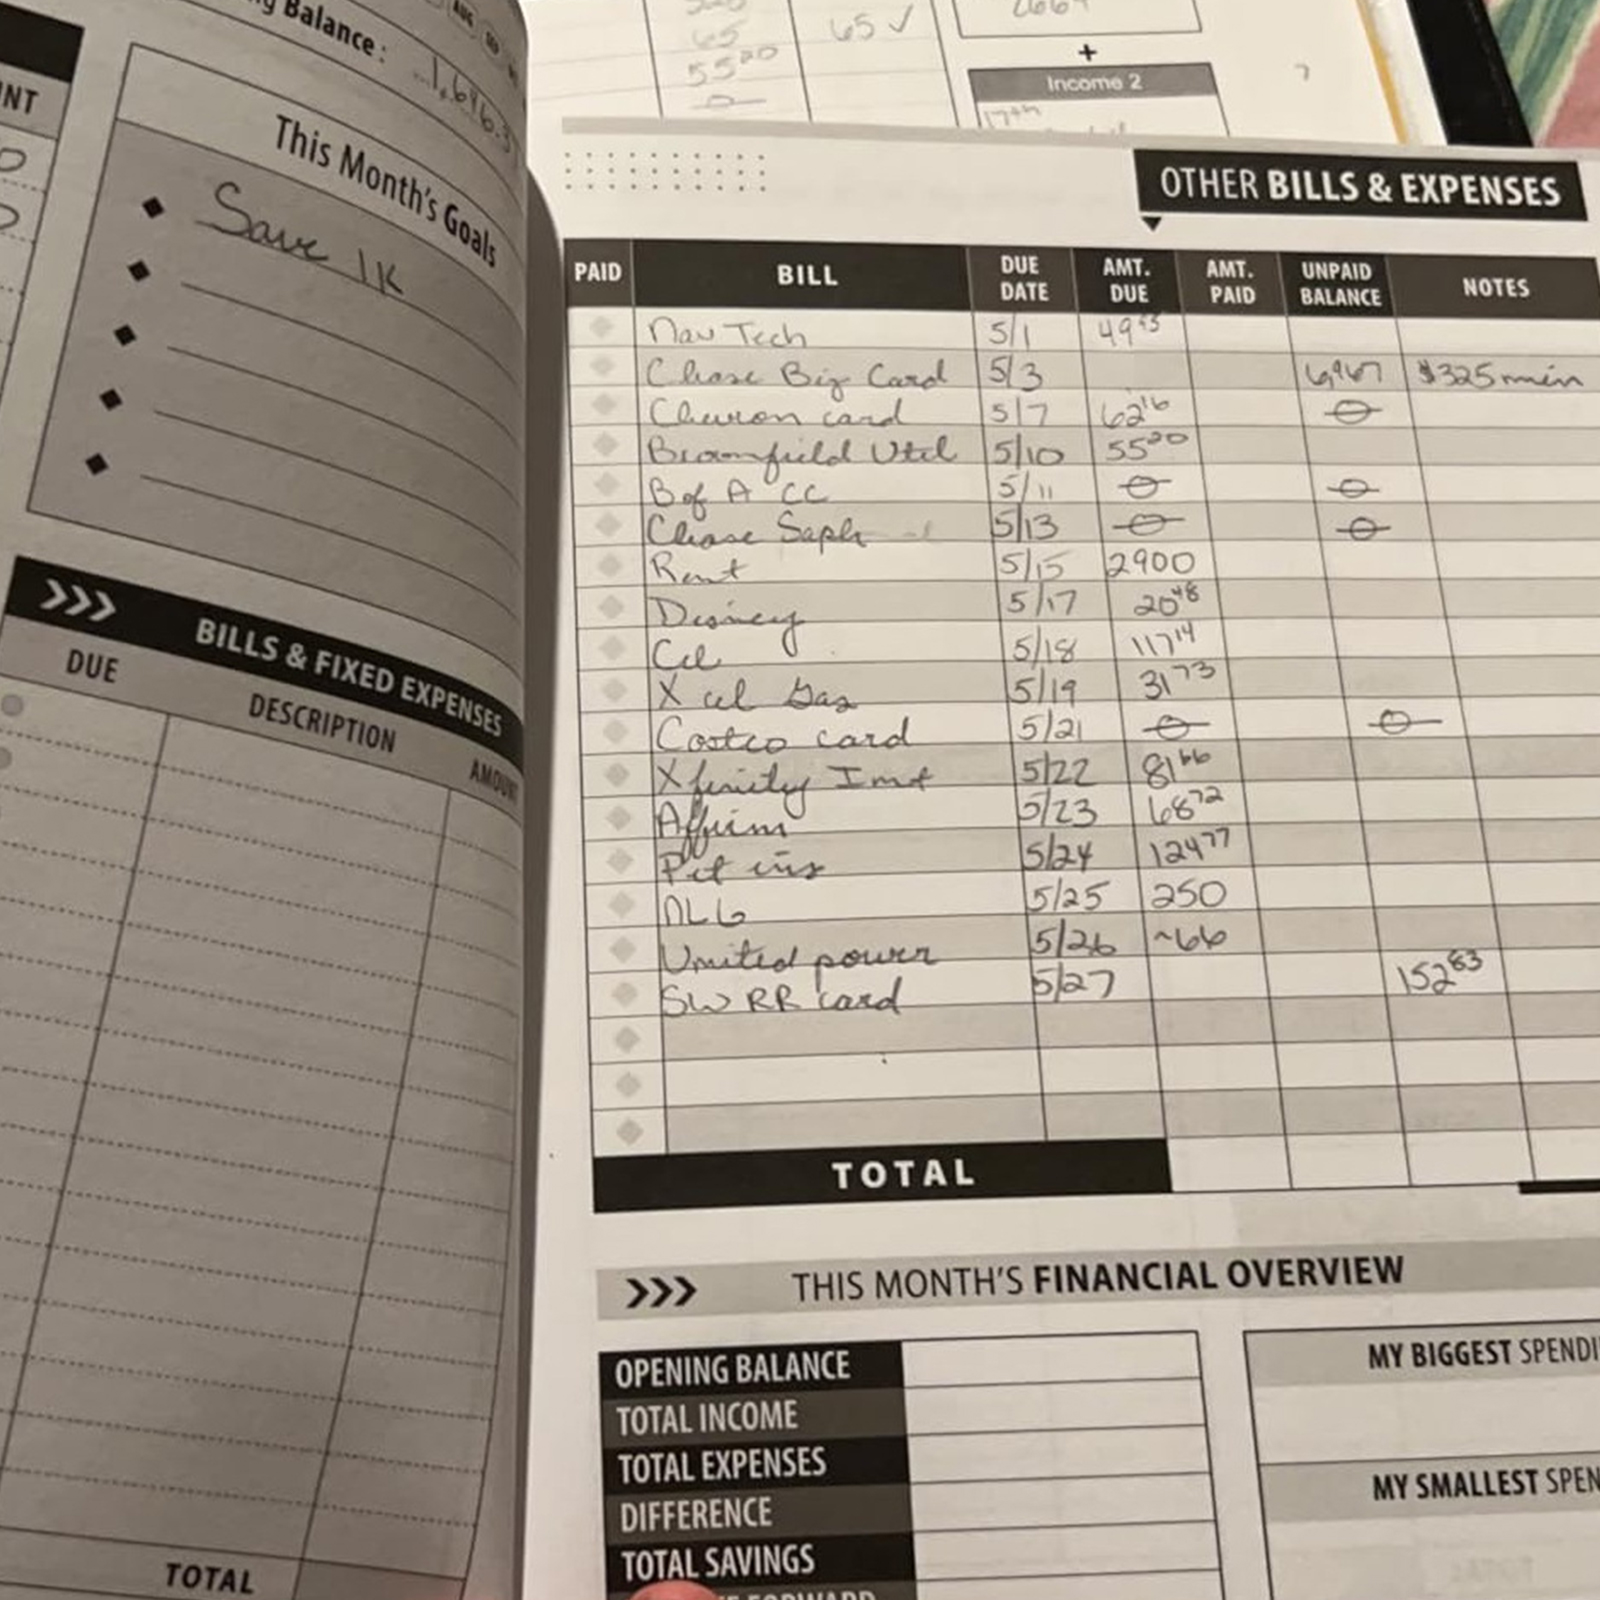 AUG
SEP
Balance:
1,646.3
NT
This Month's Goals
Save 1K
>>> BILLS & FIXED EXPENSES
DUE DESCRIPTION AMOUN
TOTAL
65 65 ✓
55 20
+
Income 2
17th
OTHER BILLS & EXPENSES
PAID BILL DUE DATE AMT. DUE AMT. PAID UNPAID BALANCE NOTES
Nav Tech 5/1
Chase Biz Card 5/3 6,967 $325 min
Chevron card 5/7 62 16 0
Broomfield Util 5/10 55 20
B of A CC 5/11 0 0
Chase Saph 5/13 0 0
Rent 5/15 2900
Disney 5/17 20 48
Cel 5/18 117 14
Xcel Gas 5/19 31 73
Costco card 5/21 0 0
Xfinity Int 5/22 81 66
Affirm 5/23 68 72
Pet ins 5/24 124 77
NLG 5/25 250
United power 5/26 ~66
SW RR card 5/27 152 83
TOTAL
>>> THIS MONTH'S FINANCIAL OVERVIEW
OPENING BALANCE
TOTAL INCOME
TOTAL EXPENSES
DIFFERENCE
TOTAL SAVINGS
FORWARD
MY BIGGEST SPENDI
MY SMALLEST SPEN